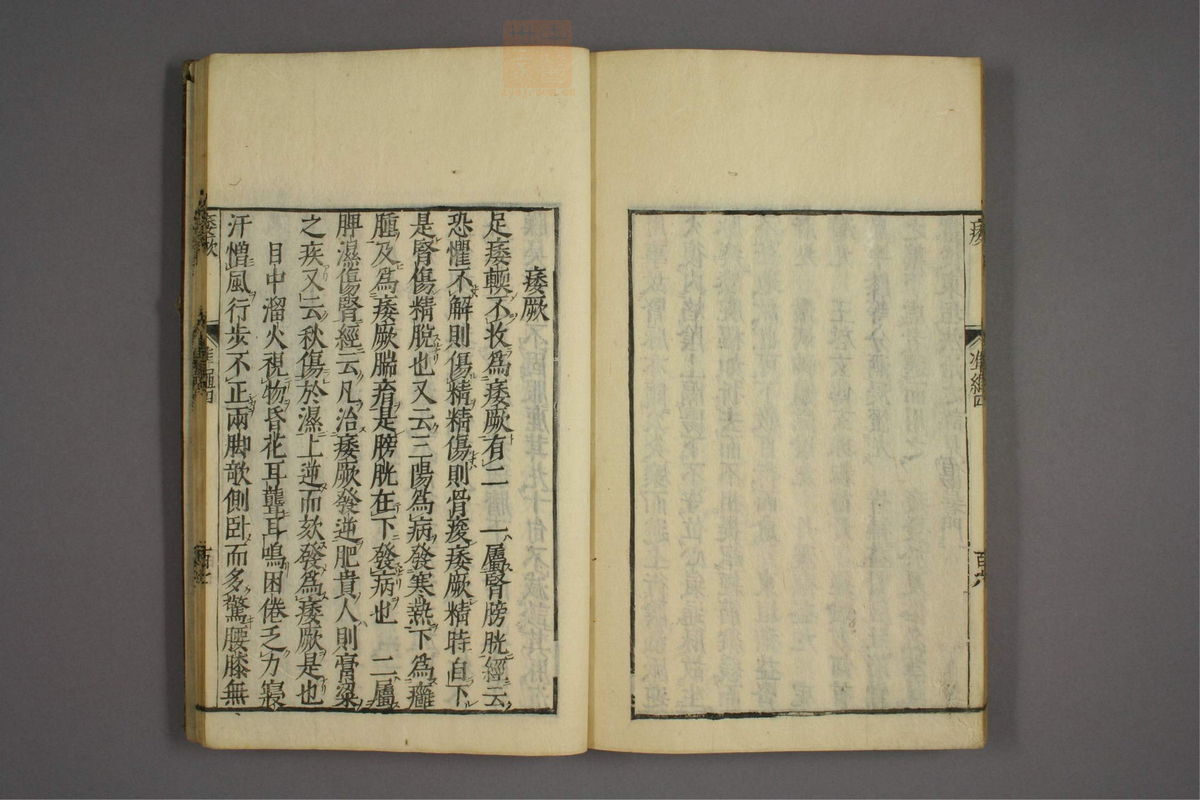 痿厥
足痿軟不收爲痿厥有二　一屬腎膀胱經云
恐懼不解則傷精精傷則骨痠痿厥精時自下
是腎傷精脫也又云三陽爲病發寒熱下爲癰
腫及爲痿厥腨㾓是膀胱在下發病也　二屬
脾濕傷腎經云凡治痿厥發逆肥貴人則膏粱
之疾又云秋傷於濕上逆而欬發爲痿厥是也
目中溜火視物昏花耳聾耳鳴困倦乏力寢
汗憎風行步不正兩脚欹側卧而多驚腰膝無
痿厥
百七
準繩四
百六